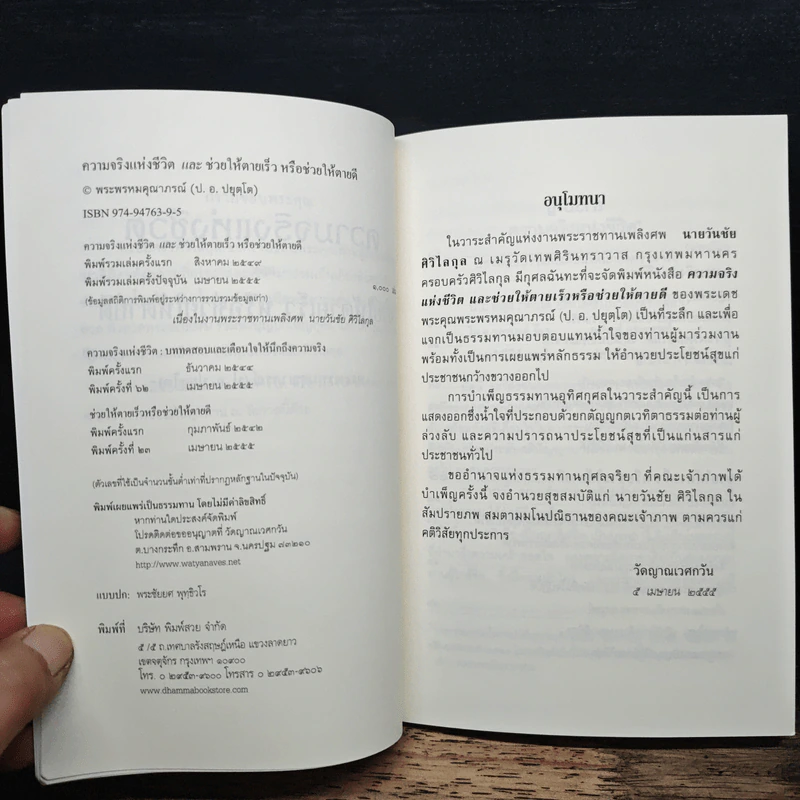 ความจริงแห่งชีวิต และ ช่วยให้ตายเร็ว หรือช่วยให้ตายดี
© พระพรหมคุณาภรณ์ (ป. อ. ปยุตฺโต)
ISBN 974-94763-9-5
ความจริงแห่งชีวิต และ ช่วยให้ตายเร็ว หรือช่วยให้ตายดี
พิมพ์รวมเล่มครั้งแรก สิงหาคม ๒๕๔๙
พิมพ์รวมเล่มครั้งปัจจุบัน เมษายน ๒๕๕๕ ๑,๐๐๐
(ข้อมูลสถิติการพิมพ์อยู่ระหว่างการรวบรวมข้อมูลเก่า)
เนื่องในงานพระราชทานเพลิงศพ นายวันชัย ศิวิไลกุล
ความจริงแห่งชีวิต : บททดสอบและเตือนใจให้นึกถึงความจริง
พิมพ์ครั้งแรก ธันวาคม ๒๕๔๔
พิมพ์ครั้งที่ ๖๒ เมษายน ๒๕๕๕
ช่วยให้ตายเร็วหรือช่วยให้ตายดี
พิมพ์ครั้งแรก กุมภาพันธ์ ๒๕๔๒
พิมพ์ครั้งที่ ๒๓ เมษายน ๒๕๕๕
(ตัวเลขที่ใช้เป็นจำนวนขั้นต่ำเท่าที่ปรากฏหลักฐานในปัจจุบัน)
พิมพ์เผยแพร่เป็นธรรมทาน โดยไม่มีค่าลิขสิทธิ์
หากท่านใดประสงค์จัดพิมพ์
โปรดติดต่อขออนุญาตที่ วัดญาณเวศกวัน
ต.บางกระทึก อ.สามพราน จ.นครปฐม ๗๓๒๑๐
http://www.watyanaves.net
แบบปก: พระชัยยศ พุทฺธิวโร
พิมพ์ที่ บริษัท พิมพ์สวย จำกัด
๕ /๕ ถ.เทศบาลรังสฤษฎ์เหนือ แขวงลาดยาว
เขตจตุจักร กรุงเทพฯ ๑๐๙๐๐
โทร. ๐ ๒๙๕๓-๙๖๐๐ โทรสาร ๐ ๒๙๕๓-๙๖๐๖
www.dhammabookstore.com
อนุโมทนา
ในวาระสำคัญแห่งงานพระราชทานเพลิงศพ นายวันชัย
ศิวิไลกุล ณ เมรุวัดเทพศิรินทราวาส กรุงเทพมหานคร
ครอบครัวศิวิไลกุล มีกุศลฉันทะที่จะจัดพิมพ์หนังสือ ความจริง
แห่งชีวิต และช่วยให้ตายเร็วหรือช่วยให้ตายดี ของพระเดช
พระคุณพระพรหมคุณาภรณ์ (ป. อ. ปยุตฺโต) เป็นที่ระลึก และเพื่อ
แจกเป็นธรรมทานมอบตอบแทนน้ำใจของท่านผู้มาร่วมงาน
พร้อมทั้งเป็นการเผยแพร่หลักธรรม ให้อำนวยประโยชน์สุขแก่
ประชาชนกว้างขวางออกไป
การบำเพ็ญธรรมทานอุทิศกุศลในวาระสำคัญนี้ เป็นการ
แสดงออกซึ่งน้ำใจที่ประกอบด้วยกตัญญูกตเวทิตาธรรมต่อท่านผู้
ล่วงลับ และความปรารถนาประโยชน์สุขที่เป็นแก่นสารแก่
ประชาชนทั่วไป
ขออำนาจแห่งธรรมทานกุศลจริยา ที่คณะเจ้าภาพได้
บำเพ็ญครั้งนี้ จงอำนวยสุขสมบัติแก่ นายวันชัย ศิวิไลกุล ใน
สัมปรายภพ สมตามมโนปณิธานของคณะเจ้าภาพ ตามควรแก่
คติวิสัยทุกประการ
วัดญาณเวศกวัน
๕ เมษายน ๒๕๕๕